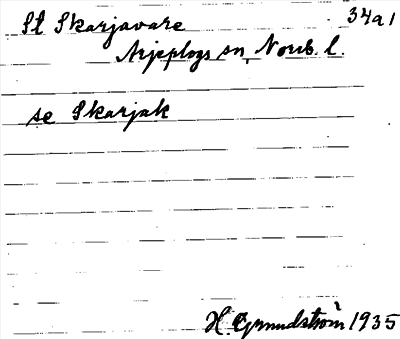 St Skarjavare 34a1
Arjeplogs sn, Norrb. l.
se Skarjak
H. Grundström 1935